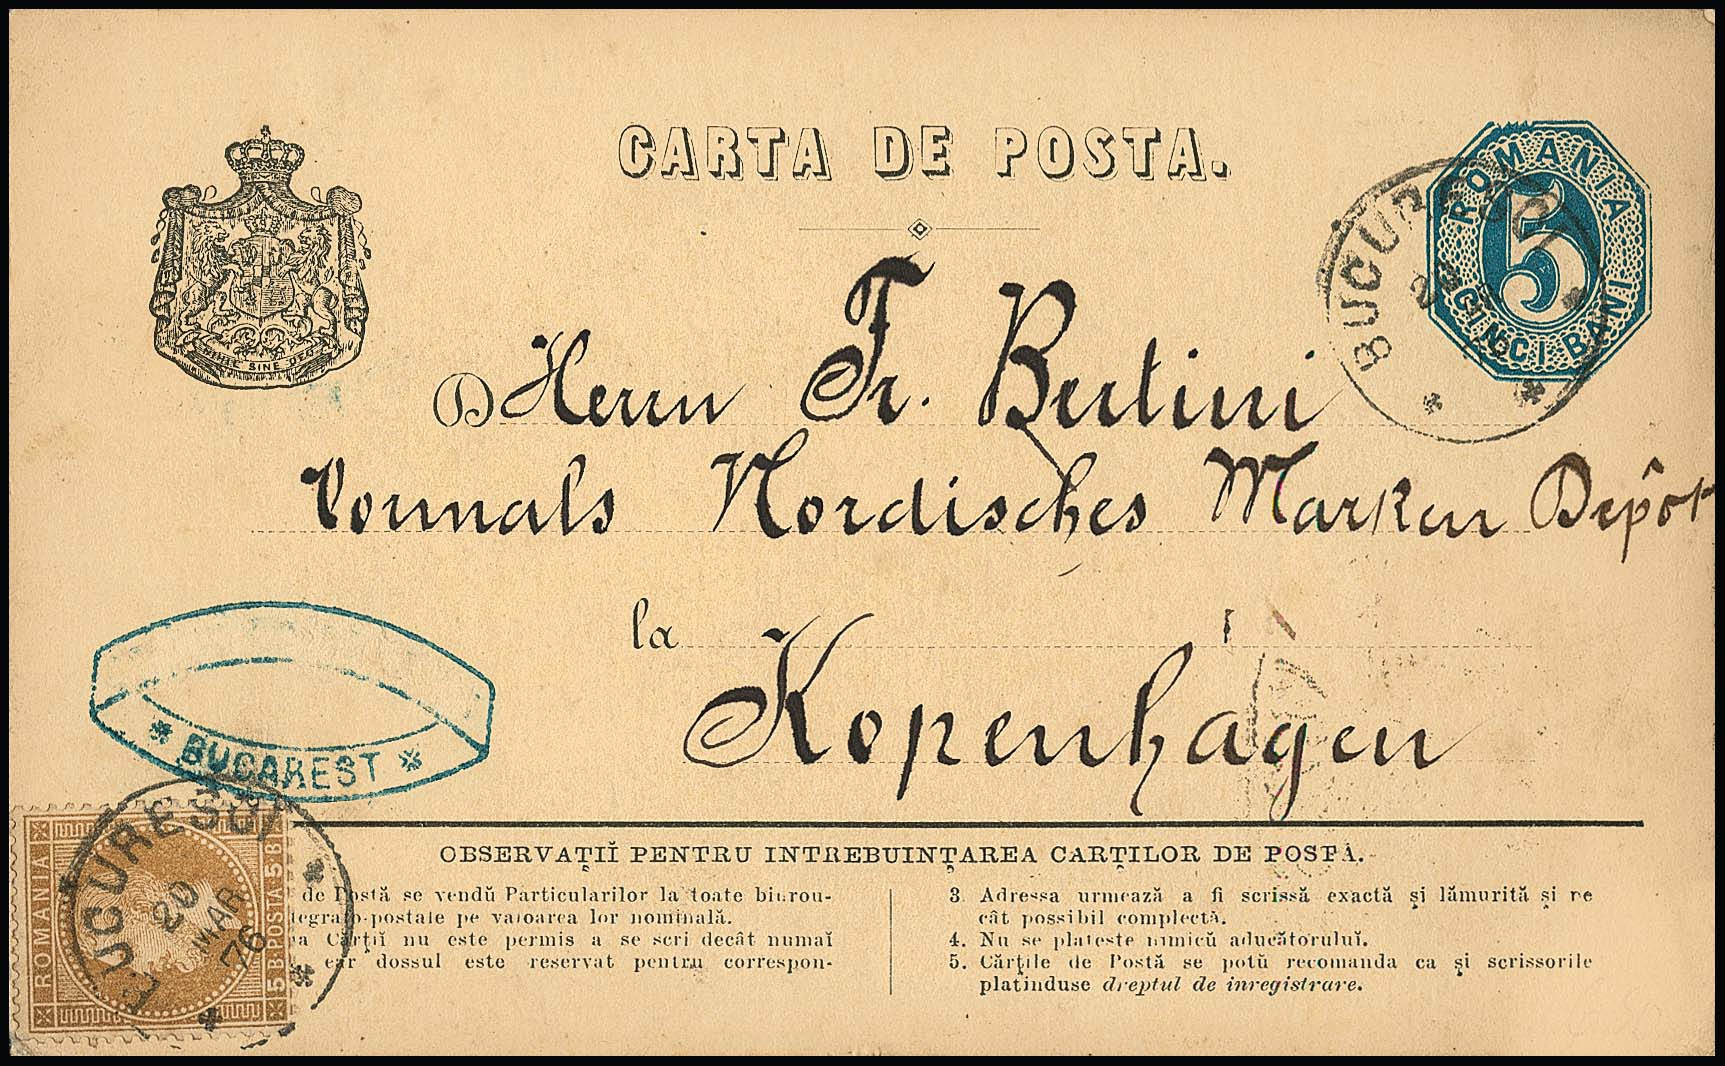 CARTA DE POSTA.
ROMANIA
5
CINCI BANI
BUCURESCI
NIHIL SINE DEO
D Herrn Fr. Bertini
Vormals Nordisches Marken Depôt
la
Kopenhagen
* BUCAREST *
OBSERVAȚIĬ PENTRU INTREBUINȚAREA CARȚILOR DE POSTA.
de Postă se vendŭ Particularilor la toate biurou-
telegrafo-postale pe valoarea lor nominală.
Cărții nu este permis a se scri decât numaĭ
ear dossul este reservat pentru correspon-
3. Adressa urmează a fi scrissă exactă și lămurită și pe
cât possibil complectă.
4. Nu se plătește nimicŭ aducătoruluĭ.
5. Cărțile de Postă se potŭ recomanda ca și scrissorile
platinduse dreptul de inregistrare.
ROMANIA
5 B POSTA 5 B
BUCURESCI
20
MAR
76